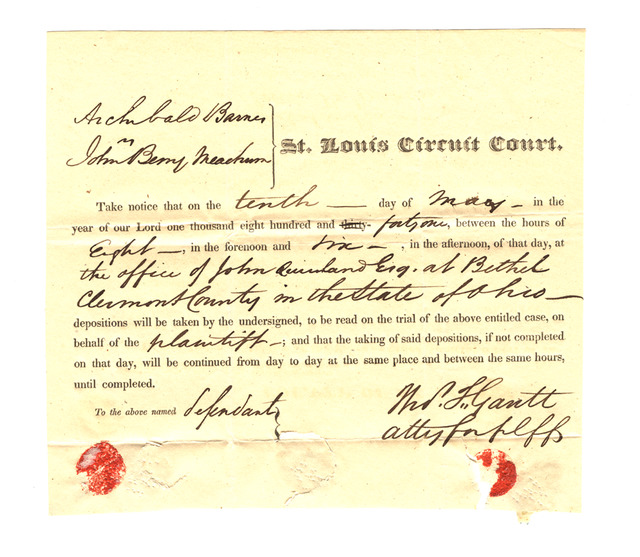 Archibald Barnes
vs
John Berry Meachum
St. Louis Circuit Court.
Take notice that on the tenth — day of May – in the
year of our Lord one thousand eight hundred and thirty- forty one, between the hours of
Eight —, in the forenoon and six —, in the afternoon, of that day, at
the office of John Esq. at Bethel
Clermont County in the State of Ohio —
depositions will be taken by the undersigned, to be read on the trial of the above entitled case, on
behalf of the plaintiff —; and that the taking of said depositions, if not completed
on that day, will be continued from day to day at the same place and between the same hours,
until completed.
To the above named defendant
Thos. T. Gantt
atty for plffs